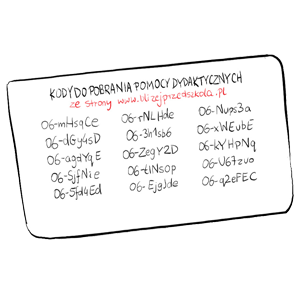 KODY DO POBRANIA POMOCY DYDAKTYCZNYCH
ze strony www.blizejprzedszkola.pl
06-mHsqCe 06-rNLHde 06-Nups3a
06-dGy4sD 06-3h1sb6 06-xWEubE
06-agdYqE 06-ZegY2D 06-kYHpNq
06-SjfNie 06-tINsop 06-U67zuo
06-5fd4Ed 06-EjgJde 06-q2eFEC